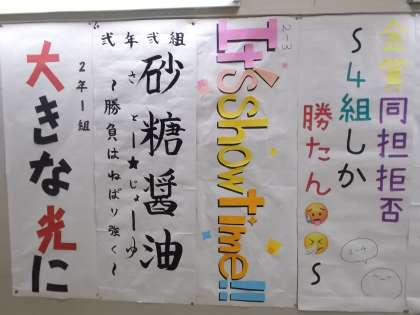 大きな光に
2年1組
弐年弐組
砂糖醤油
さとー★じょーゆ
～勝負はねばり強く～
2-3
It's Show time!!
金賞同担拒否
～4組しか
勝たん🥵🤧～
2-4